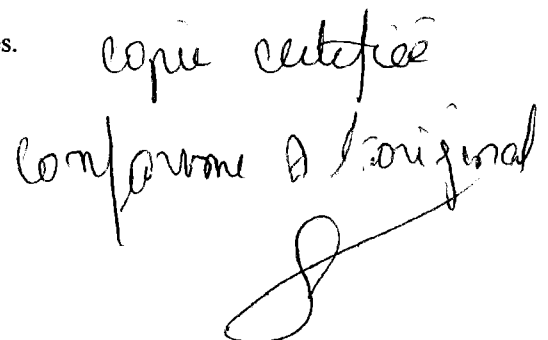 s.
copie certifiée
conforme à l'original